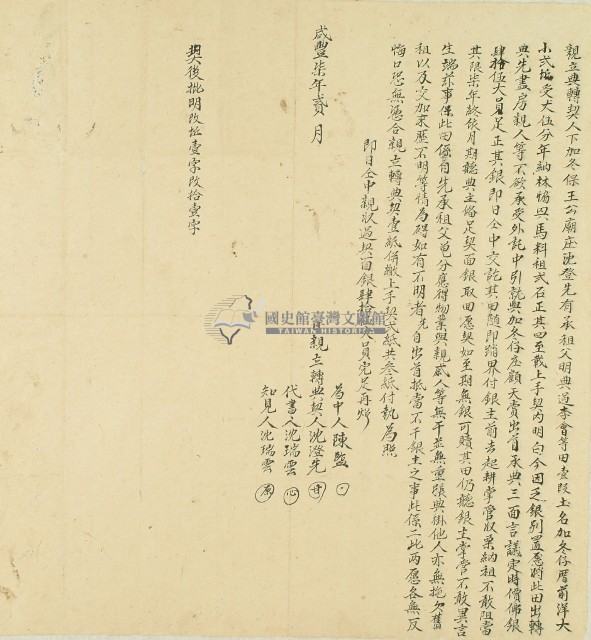 親立典轉契人下加冬保王公廟庄沈登先有承祖父明典過李會等田壹段土名加冬仔厝前洋大
小弍坵受丈伍分年納林協興馬料租弍石正其四至載上手契內明白今因乏銀別置愿將此田出轉
典先盡房親人等不欲承受外託中引就與加冬仔庄顧天賞出首承典三面言議定時價佛銀
肆拾伍大員足正其銀即日仝中交訖其田隨即踏界付銀主前去起耕掌管收粟納租不敢阻當
其限柒年終依月期聽典主備足契面銀取田愿契如至期無銀可贖其田仍聽銀主掌管不敢異言
生端茲事保此田係自先承祖父鬮分應得物業與親戚人等無干並無重張典掛他人亦無拖欠舊
租以及交加來歷不明等情為碍如有不明者先自出首抵當不干銀主之事此係二比兩愿各無反
悔口恐無憑合親立轉典契壹紙併繳上手契弍紙共叁紙付執為照
即日仝中親收過契面銀肆拾伍大員完足再炤
為中人陳監
咸豐柒年貳月 日親立轉典契人沈澄先
代書人沈瑞雲
知見人沈瑞雲
契後批明改坵壹字改拾壹字
國史館臺灣文獻館
TAIWAN HISTORICA